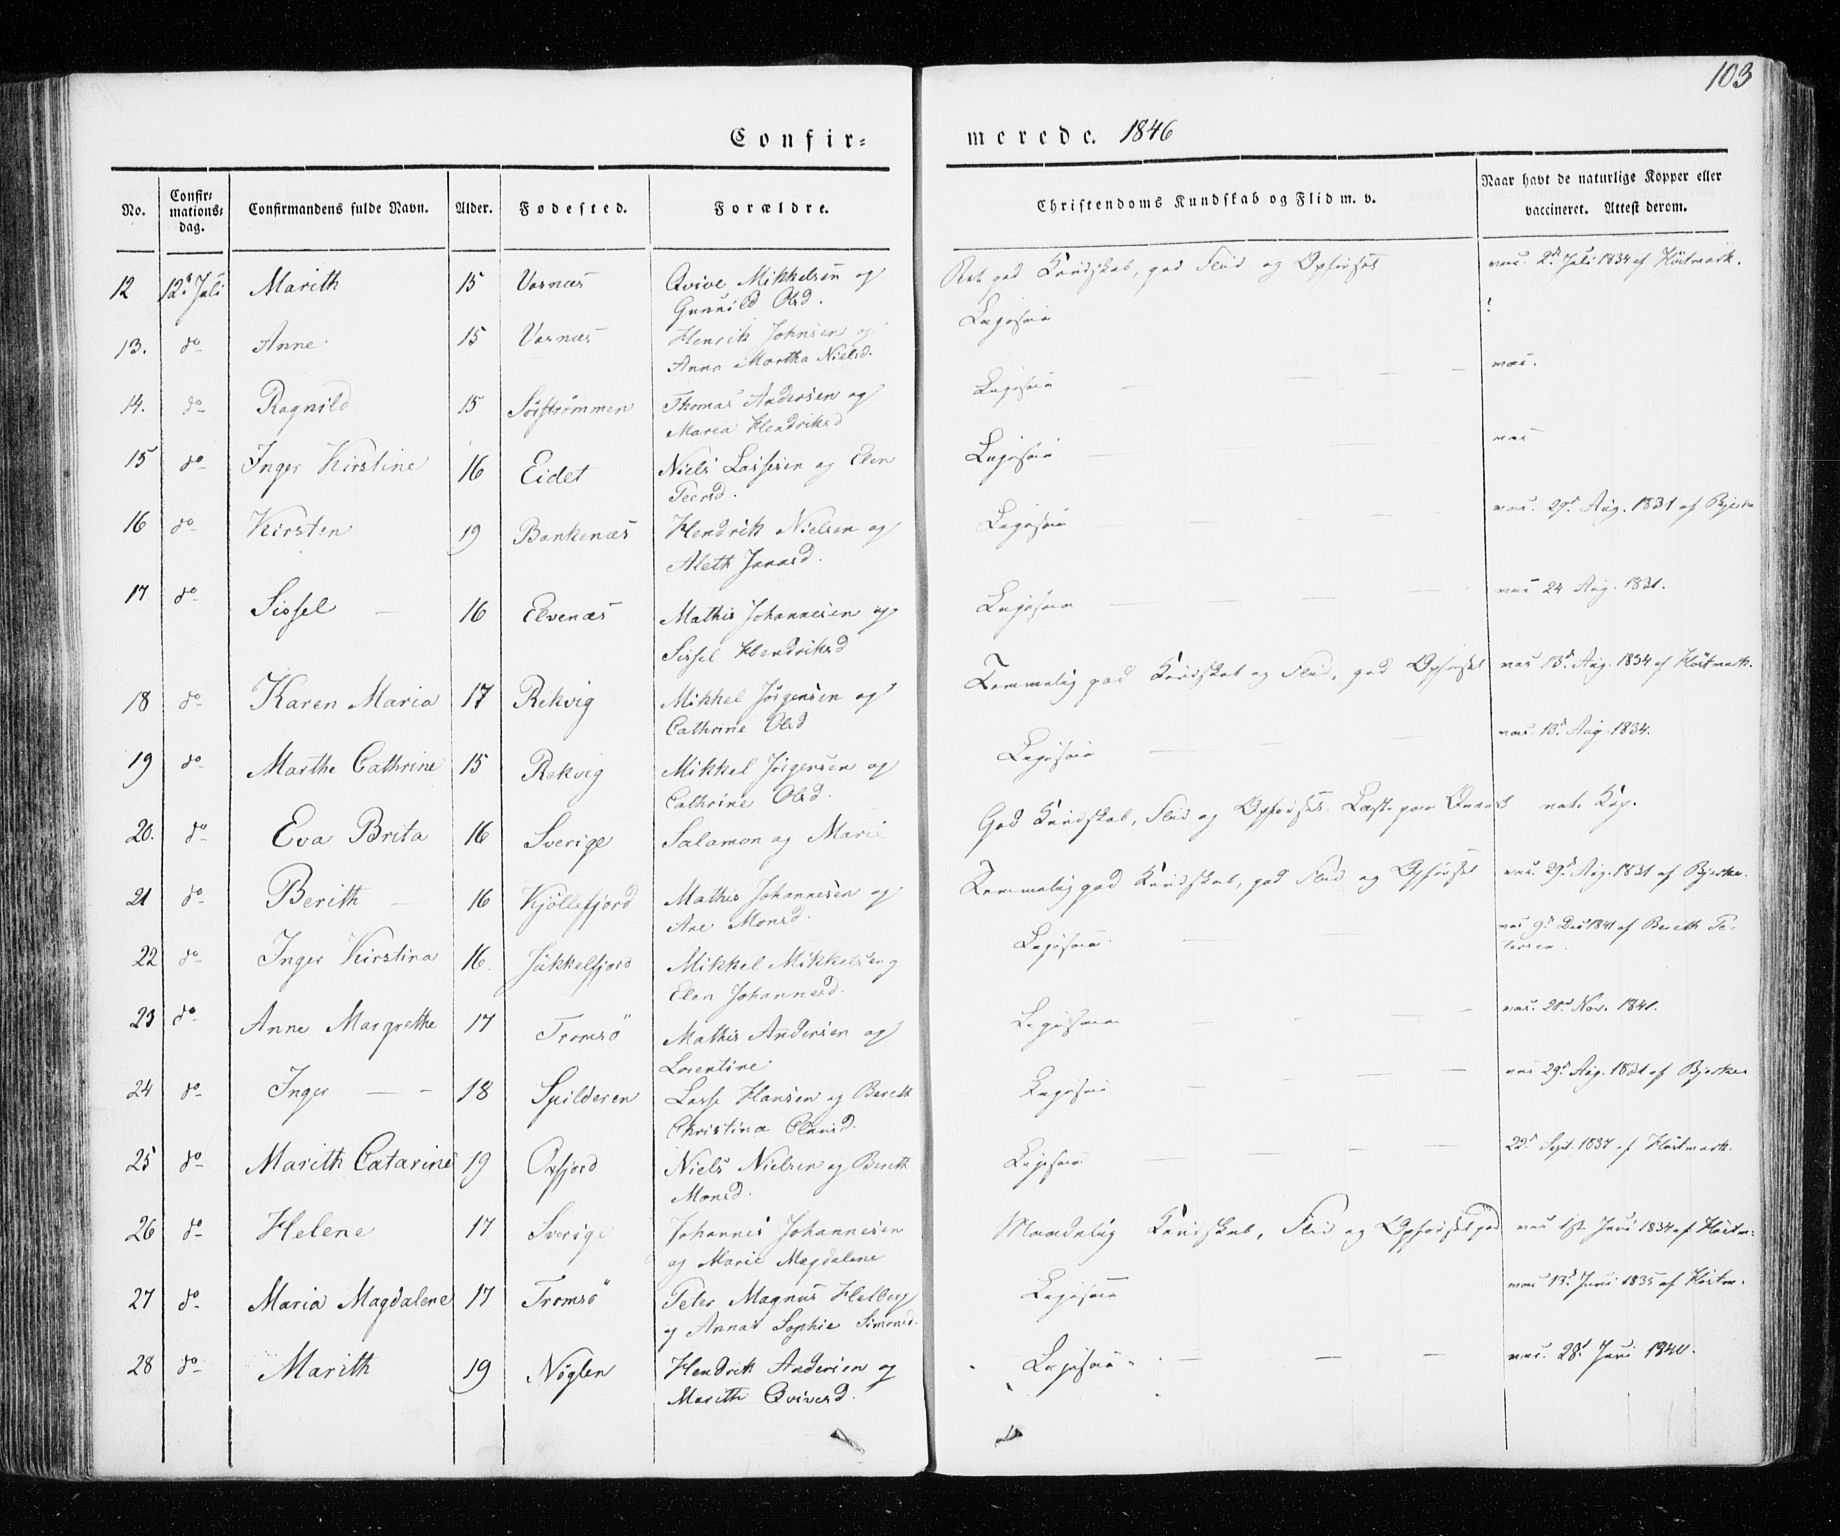 103
Confir= merede. 1846
No. Confir= mations= dag. Confirmandens fulde Navn. Alder. Fødested. Forældre. Christendoms Kundskab og Flid m. v. Naar havt de naturlige Kopper eller vaccineret. Attest derom.
12 12t Juli Marith 15 Vasnæs Qvive Mikkelsen og Ret god Kundskab, god Flid og Opførsel vac. 2d Juli 1834 af Høstmark.
Gunnild Olsd. Ligesaa ?
13. do Anne 15 Vasnæs Henrik Johnsen og
Anna Martha Nielsd. vac.
14. do Ragnild 15 Sørstrømmen Thomas Andersen og Ligesaa — — — —
Maria Hendriksd vac
15 do Inger Kirstine 16 Eidet Niels Lassesen og Elen Ligesaa
Peersd.
16 do Kirsten 19 Bankenæs Hendrik Nielsen og Ligesaa vac. 29d Aug. 1831 af Bjerke
Aleth Jonasd.
17 do Sissel — 16 Elvenæs Mathis Johannesen og Ligesaa vac 24 Aug. 1831.
Sissel Hendriksd
18 do Karen Maria 17 Rekvig Mikkel Jørgensen og Temmelig god Kundskab og Flid, god Opførsel vac 13d Aug. 1834 af Høstmark.
Cathrine Olsd
19 do Marthe Cathrine 15 Rekvig Mikkel Jørgensen og Ligesaa vac. 13d Aug. 1834.
Cathrine Olsd.
20. do Eva Brita 16 Sverige Salamon og Marie God Kundskab, Flid og Opførsel. Læst paa nat. Kop.
21 do Berith — 16 Kjøllefjord Mathis Johannesen og Temmelig god Kundskab, god Flid og Opførsel vac. 29d Aug. 1831 af Bjerke.
Ane Monsd.
22 do Inger Kirstina 16. Jøkkelfjord Mikkel Mikkelsen og Ligesaa. vac 9d Dec 1841 af Bereth Pe-
Elen Johannesd. tersen
23 do Anne Margrethe 17 Tromsö Mathis Andersen og Ligesaa vac. 28d Nov. 1841.
Lorentine
24 do Inger — — 18 Spilderen Lasse Hansen og Bereth Ligesaa vac 29d Aug. 1831 af Bjerke
Christina Clausd.
25 do Marith Catarine 19 Oxfjord Niels Nielsen og Bereth Ligesaa 22d Sept. 1837 af Høstmark.
Monsd.
26 do Helene 17 Sverige Johannes Johannesen Maadelig Kundskab, Flid og Opførsel god vac 1st Juni 1834 af Høstm:
og Marie Magdalene
27 do Maria Magdalene 17 Tromsö Peter Magnus Helberg Ligesaa vac 13d Juni 1835 af Høstm.
og Anna Sophie Simonsd.
28 do Marith 19 Nøglen Hendrik Andersen og Ligesaa — — — vac. 28d Juni 1840.
Marith Qvivesd.